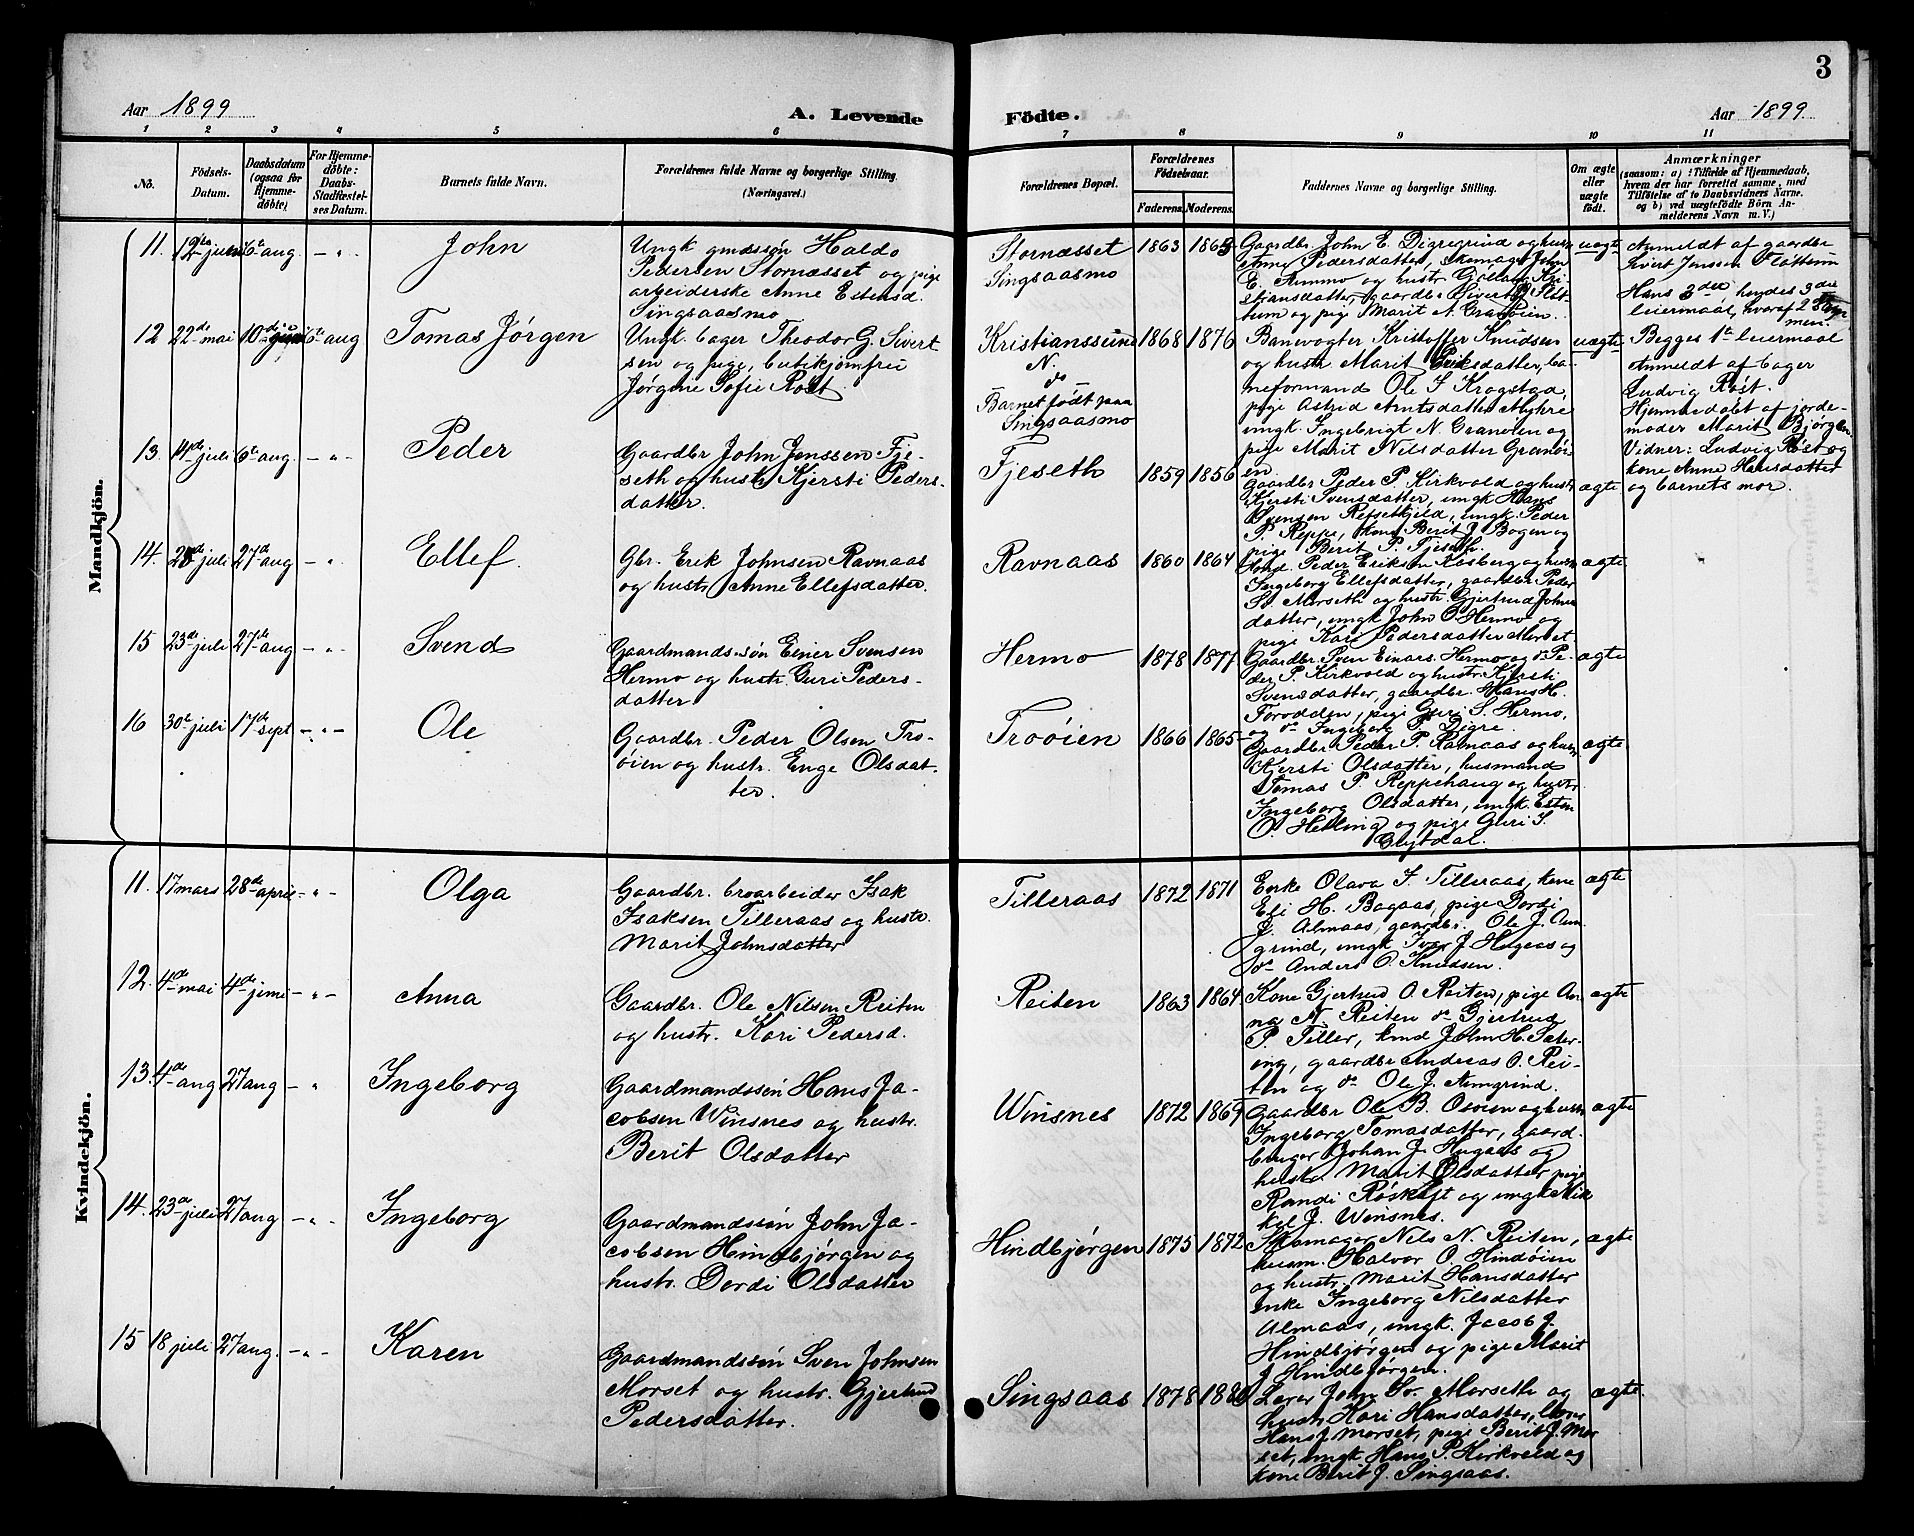 3
Aar 1899
A. Levende
Födte.
Aar 1899
1 2 3 4 5 6 7 8 9 10 11
No.
Födsels-
Datum.
Daabsdatum
(ogsaa for
Hjemme-
döbte)
For Hjemme-
döbte:
Daabs-
Stadfæstel-
ses Datum.
Barnets fulde Navn.
Forældrenes fulde Navne og borgerlige Stilling.
(Næringsvei.)
Forældrenes Bopæl.
Forældrenes
Fødselsaar.
Faderens. Moderens.
Faddernes Navne og borgerlige Stilling.
Om ægte
eller
uægte
født.
Anmærkninger
(saasom: a) i Tilfælde af Hjemmedaab,
hvem der har forrettet samme, med
Tilföielse af to Daabsvidners Navne.
og b) ved uægtefödte Börn An-
melderens Navn m. V.)
Mandkjön.
11. 12te juni 6te aug. - " - John
Ungk. gmdssøn Haldo
Pedersen Stornæsset og pige
arbeiderske Anne Estensd.
Singsaasmo
Stornæsset
Singsaasmo
1863
Gaardbr. John E. Digregrind og hustr
Anne Pedersdatter, skomager John
stjansdatter, gaardbr Sivert J. Flot-
tum og pige Marit N. Granøien.
uægte
Anmeldt af gaardbr
Sivert Jenssen Flottum
Hans 3die hendes 3die
leiermaal, hvoraf 2 sam
men.
12 22de mai 10de juni 6te aug Tomas Jørgen
Ungk. bager Theodor G. Sivert
sen og pige, butikjomfru
Jørgine Sofie Rost.
Kristianssund
N.
do
Barnet født paa
Singsaasmo
1868 1876
Banevogter Kristoffer Knudsen
og hustr Marit Eriksdatter, ba-
neformand Ole I. Kragstad,
pige Astrid Arntsdatter Myhre
ungk. Ingebrigt N. Granøien og
pige Marit Nilsdatter Granøi
en
uægte
Begges 1te leiermaal
Anmeldt af bager
Ludvig Røst.
Hjemmedøbt af jorde-
moder Marit Bjørgen.
Vidner: Ludvig Røst og
kone Anne Hansdatter
og barnets mor.
13. 14de juli 6te aug. - " - Peder
Gaardbr John Jenssen Fje-
seth og hustr Kjersti Peders-
datter.
Fjeseth
1859 1856
Gaardbr Peder P. Kirkvold og hustr
Kjersti Svensdatter, ungk Hans
Svensen Refsethjeld, ungk. Peder
P. Reppe, kone Berit J. Bogen og
pige Berit P. Fjeseth.
ægte
14. juli 27de aug - " - Ellef.
Gbr. Erik Johnsen Ravnaas
og hustr Anne Ellefsdatter.
Ravnaas
1860 1864
Peder Eriksen Aasberg og hustr
Ingeborg Ellefsdatter, gaardbr Peder
Sv. Morseth og hustr. Gjertrud Johns
datter, ungk John O. Hermo og
pige Kari Pedersdatter Morset
ægte
15 23de juli 27de aug - " - Svend
Gaardmandssøn Einer Svensen
Hermo og hustr. Guri Peders-
datter
Hermo
1878 1877
Gaardbr. Sven Einars. Hermo og do Pe-
der P. Kirkvold og hustr Kjersti
Svensdatter, gaardbr. Hans H.
Forodden, pige Guri S. Hermo,
og do Ingeborg P. Digre.
ægte
16 30te juli 17de sept - " - Ole
Gaardbr. Peder Olsen Tro-
øien og hustr. Enge Olsdat-
ter.
Troøien
1866 1865
Gaardbr Peder P. Ramaas og hustr
Kjersti Olsdatter, husmand
Tomas P. Reppehaug og hustr
Ingeborg Olsdatter, ungk. Esten
O. Helling og pige Guri I.
ægte
Kvindekjön.
11. 17 mars 28de april - " - Olga
Gaardbr. broarbeider Isak
Isaksen Tilleraas og hustr.
Marit Johnsdatter
Tilleraas
1872 1871
Enke Olava I. Tilleraas, kone
Eli H. Bagaas, pige Dordi
J. Almaas, gaardbr. Ole J. Aun-
grind, ungk Ivar J. Hugaas og
do Anders O. Knudsen.
ægte
12. 4de mai 4de juni - " - Anna
Gaardbr. Ole Nilsen Reiten
og hustr. Kari Pedersd.
Reiten
1863 1864
Kone Gjertrud O. Reiten, pige An-
na N. Reiten do Gjertrud
P. Tiller, hmd John H. Sæter-
eng, gaardbr Andreas O. Rei-
ten og do Ole J. Aungrind.
ægte
13. 4de aug 27 aug - " Ingeborg
Gaardmandssøn Hans Ja-
cobsen Winsnes og hustr.
Berit Olsdatter
Winsnes
1872 1869
Gaardbr Ole B. Osøien og hustr
Ingeborg Tomasdatter, gaard-
bruger Johan J. Hugaas og
hustr Marit Olsdatter pige
Randi Røskaft og ungk Mik
kel J. Winsnes.
ægte
14. 23de juli 27 aug - " - Ingeborg
Gaardmandssøn John Ja-
cobsen Hindbjørgen og
hustr. Dordi Olsdatter
Hindbjørgen
1875 1872
Skomager Nils N. Reiten,
husm. Halvor O. Hindøien
og hustr. Marit Hansdatter
enke Ingeborg Nilsdatter
Almaas, ungk. Jacob J.
Hindbjørgen og pige Marit
J Hindbjørgen.
ægte
15 18 juli 27 aug. - " - Karen
Gaardmandssøn Sven Johnsen
Morset og hustr. Gjertrud
Pedersdatter.
Singsaas
1878 1880
Lærer John Sv. Morseth og
hustr Kari Hansdatter, lærer
Hans J Morset, pige Berit J. Mor
set, ungk Hans P. Kirkvold og
kone Berit J. Singsaas.
ægte.